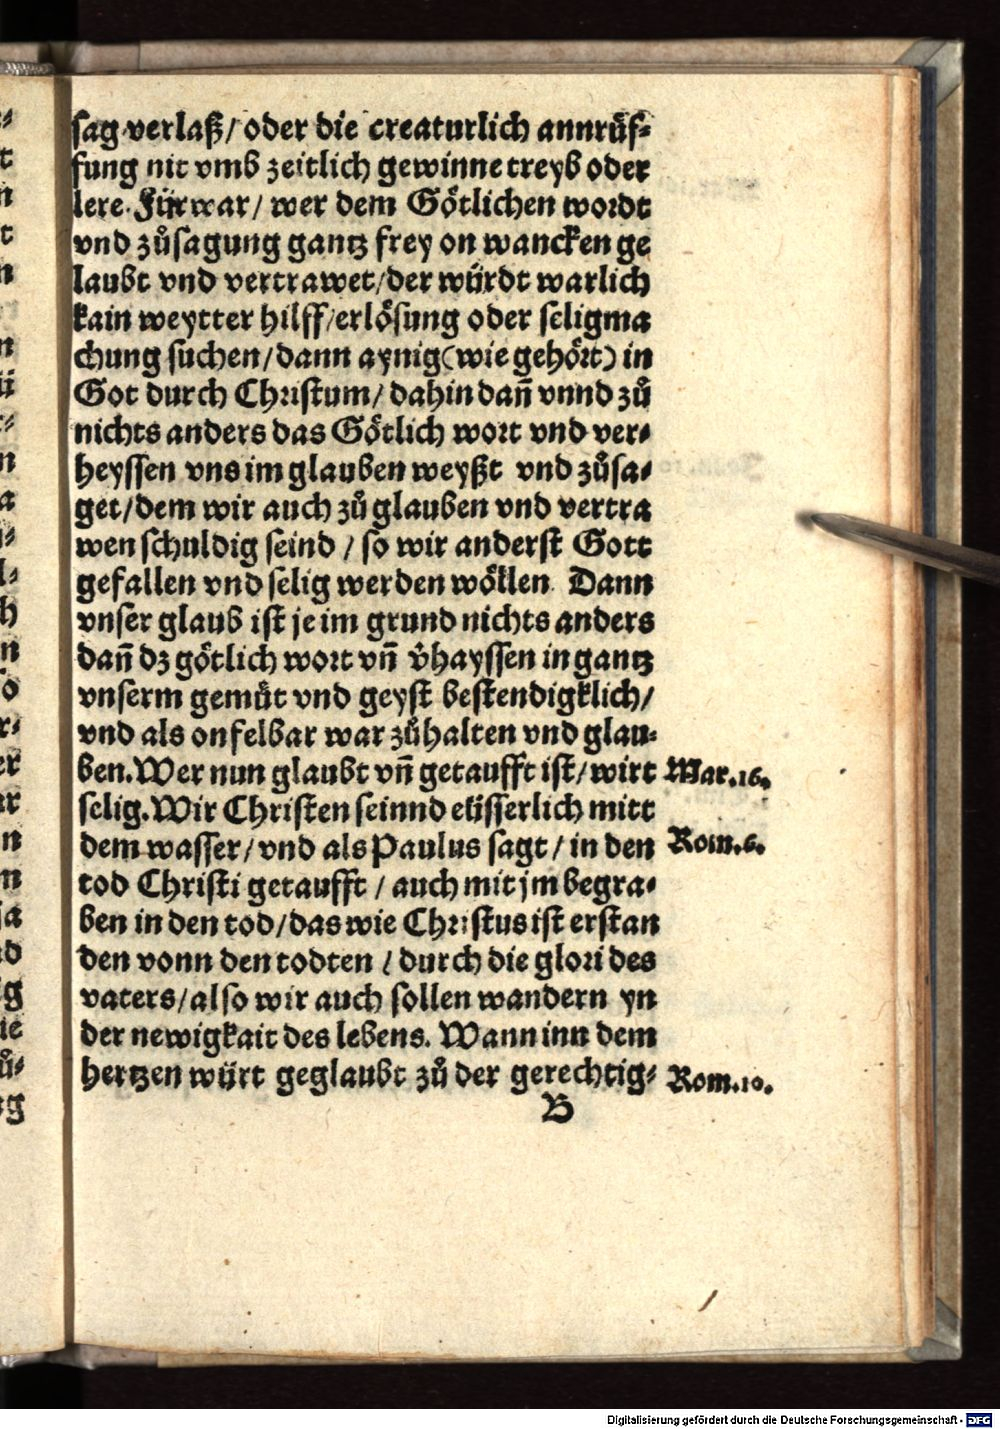 sag verlaß/ oder die creaturlich annrüf⸗
fung nit vmb zeitlich gewinne treyb oder
lere. Fürwar/ wer dem Götlichen wordt
vnd zůsagung gantz frey on wancken ge
laubt vnd vertrawet/ der würdt warlich
kain weytter hilff/ erlösung oder seligma
chung suchen/ dann aynig (wie gehört) in
Got durch Christum/ dahin dañ vnnd zů
nichts anders das Götlich wort vnd ver⸗
heyssen vns im glauben weyßt vnd zůsa⸗
get/ dem wir auch zů glauben vnd vertra
wen schuldig seind / so wir anderst Gott
gefallen vnd selig werden wöllen. Dann
vnser glaub ist je im grund nichts anders
dañ dz götlich wort vñ v̉hayssen in gantz
vnserm gemüt vnd geyst bestendigklich/
vnd als onfelbar war zůhalten vnd glau⸗
ben. Wer nun glaubt vñ getaufft ist/ wirt Mar.16.
selig. Wir Christen seinnd eüsserlich mitt
dem wasser/ vnd als Paulus sagt/ in den Rom.6.
tod Christi getaufft / auch mit jm begra⸗
ben in den tod/ das wie Christus ist erstan
den vonn den todten / durch die glori des
vaters/ also wir auch sollen wandern yn
der newigkait des lebens. Wann inn dem
hertzen würt geglaubt zů der gerechtig⸗ Rom.10.
B
Digitalisierung gefördert durch die Deutsche Forschungsgemeinschaft - DFG